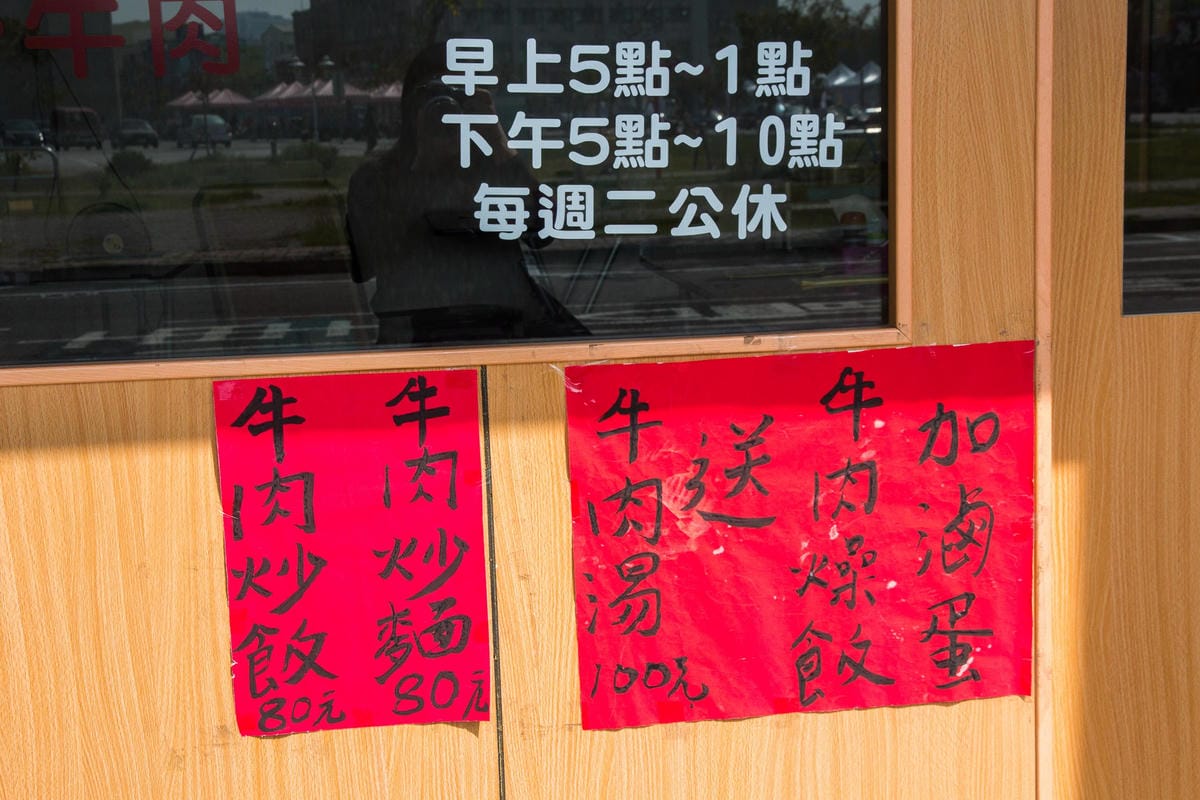 牛肉
早上5點~1點
下午5點~10點
每週二公休
牛肉炒麵80元
牛肉炒飯80元
加滷蛋
牛肉燥飯
送
牛肉湯100元